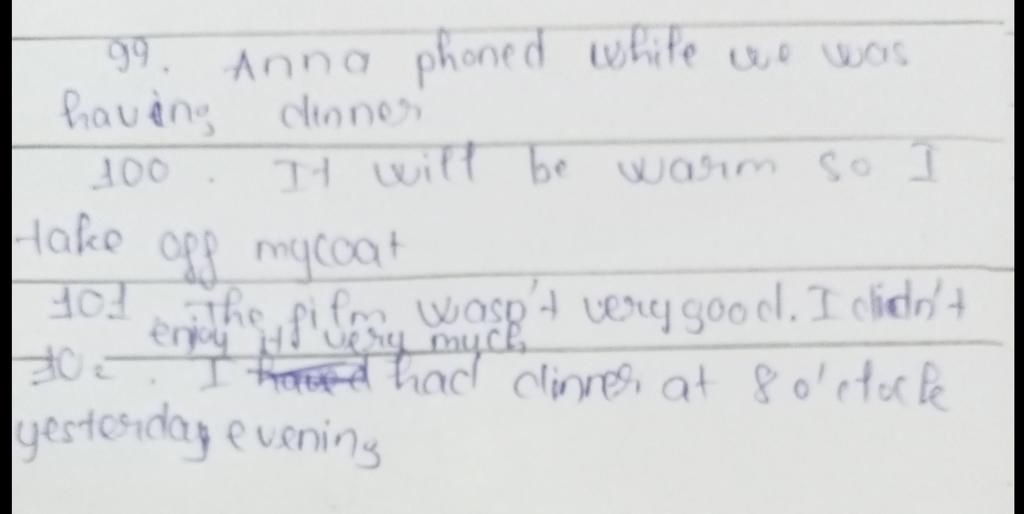 99. Anna phoned while we was
having dinner
100. It will be warm so I
take off my coat
101 The film wasn't very good. I didn't
enjoy it very much
102. I had dinner at 8 o'clock
yesterday evening